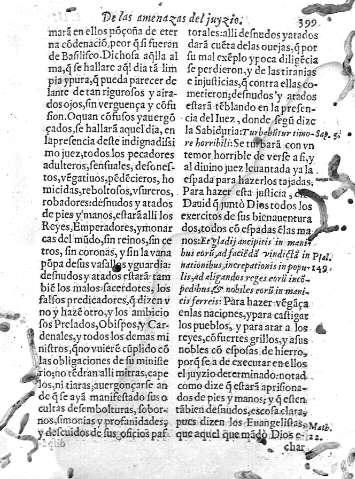 De las amenazas del juyzio. 399
mará en ellos põçoña de eterna
cõdenació, por q̃ si fueran
de Basilisco. Dichosa aq̃lla alma,
q̃ se hallare aq̃l dia tã limpia
ypura, q̃ pueda parecer delante
de tan rigurosos y airados
ojos, sin verguença y cõfusion.
O quan cõfusos yauergõçados,
se hallará aquel dia, en
la presencia deste indignadissimo
juez, todos los pecadores
adulteros, sensuales, desonestos,
vẽgatiuos, pẽdẽcieros, homicidas,
reboltosos, vsureros,
robadores: desnudos y atados
de pies y manos, estará alli los
Reyes, Emperadores, y monarcas
del mũdo, sin reinos, sin cetros,
sin coronas, y sin la vana
põpa de sus vasallos y guardia:
desnudos y atados estará tambiẽ
los malos sacerdotes, los
falsos predicadores, q̃ dizen vno
y hazẽ otro, y los ambiciosos
Prelados, Obispos, y Cardenales,
y todos los demas ministros,
q̃ no vuierẽ cũplido cõ
las obligaciones de su ministerio;
no tẽdran alli mitras, capelos,
ni tiaras; auergonçarse an
de q̃ se aya manifestado sus ocultas
desembolturas, sobornos,
simonias y profanidades,
y descuidos de sus oficios pastorales:
alli desnudos y atados
dará cuẽta de las ouejas, q̃ por
su mal exẽplo y poca diligẽcia
se perdieron, y de las tiranias
e injusticias, q̃ contra ellas cometieron;
desnudos y atados
estará tẽblando en la presencia
del Iuez, donde segũ dize
la Sabiduria: Turbabũtur timore
horribili: Se turbará con vn
temor horrible de verse a si, y
al diuino juez leuantada ya la
espada para hazerlos tajadas.
Para hazer esta justicia, dize
Dauid q̃ juntò Dios todos los
exercitos de sus bienauenturados,
todos cõ espadas ẽ las manos:
Et gladij ancipites in manibus
eorũ, ad faciẽdã vindictã in
nationibus, increpationis in populis,
ad aligandos reges eorũ in cõpedibus,
& nobiles eorũ in manicis
ferreis: Para hazer vẽgãça
en las naciones, y para castigar
los pueblos, y para atar a los
reyes, cõ fuertes grillos, y a sus
nobles cõ esposas de hierro,
porq̃ se a de executar en ellos
el juyzio determinado: notad
como dize q̃ estará aprisionados
de pies y manos; y q̃ esten
tãbien desnudos, es cosa clara,
pues dizen los Euangelistas,
que aquel que mãdò Dios echar
Sap.
Psal. 149.
Math. 22.